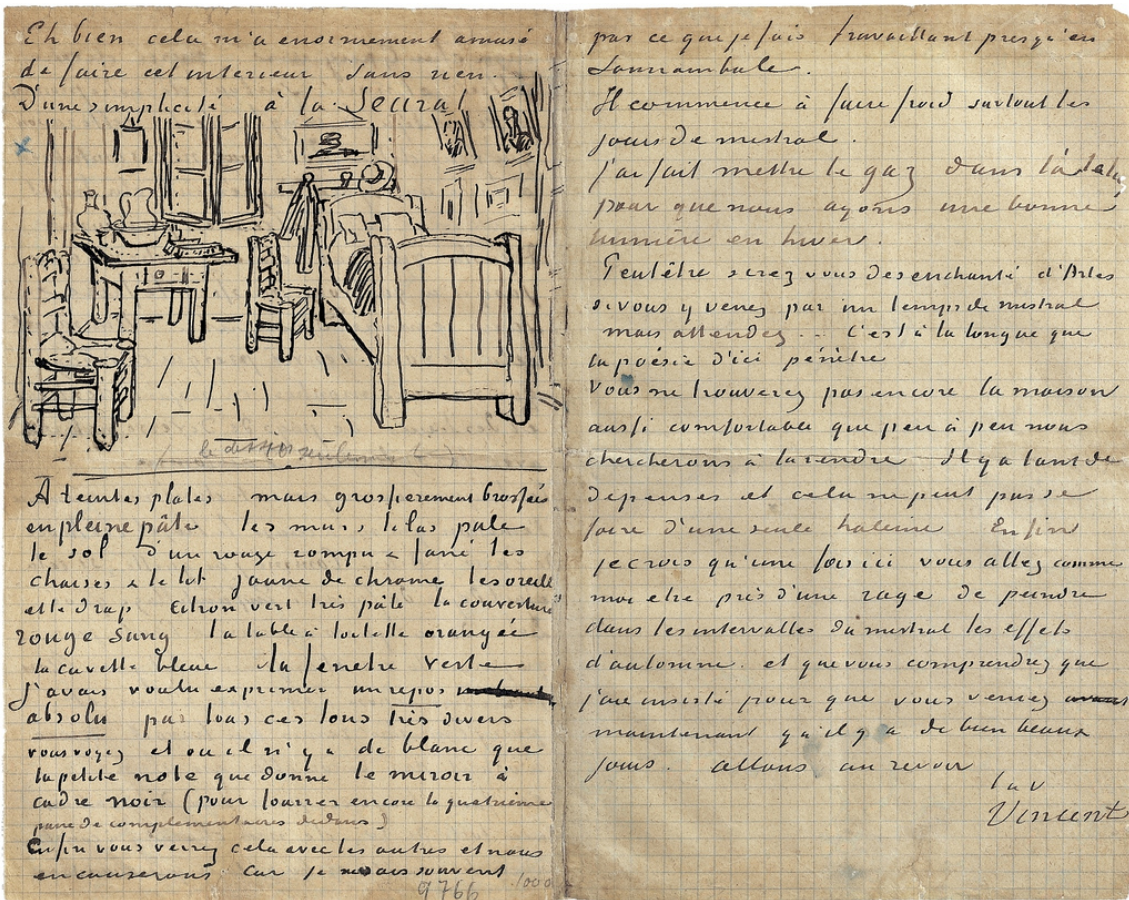 Eh bien cela m'a enormement amusé
de faire cet interieur sans rien.
D'une simplicité à la Seurat
le dessin seulement
À teintes plates mais grossierement brossées
en pleine pâte les murs lilas pale
le sol d'un rouge rompu & fané les
chaises & le lit jaune de chrome les oreill
et le drap citron vert très pâle la couverture
rouge sang la table à toilette orangée
la cuvette bleue la fenetre verte
J'avais voulu exprimer un repos
absolu par tous ces tons très divers
vous voyez et où il n'y a de blanc que
la petite note que donne le miroir à
cadre noir (pour fourrer encore la quatrième
paire de complementaires dedans)
Enfin vous verrez cela avec les autres et nous
en causerons car je ne sais souvent
9766 1000
par ce que je fais travaillant presqu'en
somnambule.
Il commence à faire froid surtout les
jours de mistral.
J'ai fait mettre le gaz dans l'atelier
pour que nous ayons une bonne
lumière en hiver.
Peutêtre serez vous desenchanté d'Arles
si vous y venez par un temps de mistral
mais attendez .. C'est à la longue que
la poésie d'ici pénètre
Vous ne trouverez pas encore la maison
aussi comfortable que peu à peu nous
chercherons à la rendre Il y a tant de
depenses et cela ne peut pas se
faire d'une seule haleine Enfin
je crois qu'une fois ici vous allez comme
moi etre pris d'une rage de peindre
dans les intervalles du mistral les effets
d'automne. et que vous comprendrez que
j'aie insisté pour que vous veniez
maintenant qu'il y a de bien beaux
jours. allons au revoir
t. à v.
Vincent